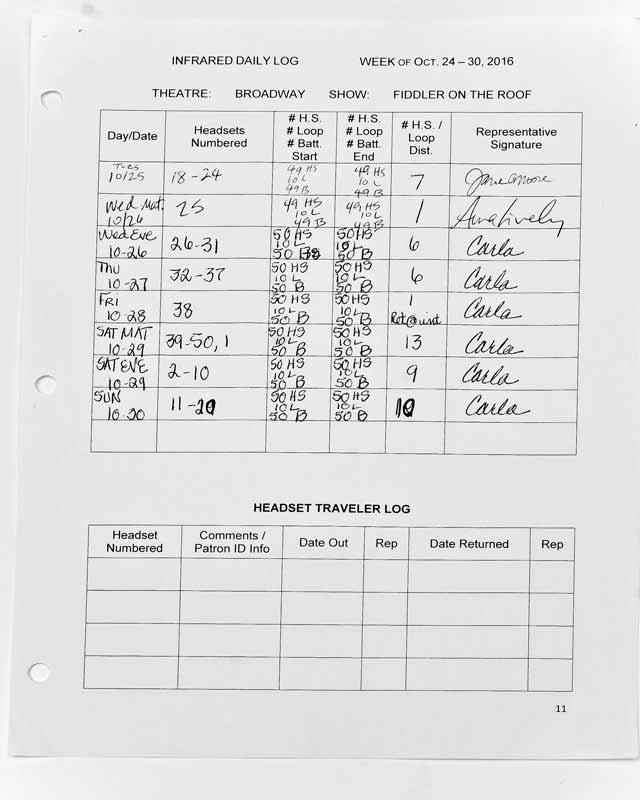 INFRARED DAILY LOG WEEK OF OCT. 24 – 30, 2016
THEATRE: BROADWAY SHOW: FIDDLER ON THE ROOF
Day/Date Headsets Numbered # H.S. # Loop # Batt. Start # H.S. # Loop # Batt. End # H.S. / Loop Dist. Representative Signature
Tues 10/25 18-24 49 HS 10 L 49 B 49 HS 10 L 49 B 7 Jane Moore
Wed Mat. 10/26 25 49 HS 10 L 49 B 49 HS 10 L 49 B 1
Wed Eve 10-26 26-31 50 HS 10 L 50 B 50 HS 10 L 50 B 6 Carla
THU 10-27 32-37 50 HS 10 L 50 B 50 HS 10 L 50 B 6 Carla
FRI 10-28 38 50 HS 10 L 50 B 50 HS 10 L 50 B 1 Ret@int Carla
SAT MAT 10-29 39-50, 1 50 HS 10 L 50 B 50 HS 10 L 50 B 13 Carla
SAT EVE 10-29 2-10 50 HS 10 L 50 B 50 HS 10 L 50 B 9 Carla
SUN 10-30 11-20 50 HS 10 L 50 B 50 HS 10 L 50 B 10 Carla
HEADSET TRAVELER LOG
Headset Numbered Comments / Patron ID Info Date Out Rep Date Returned Rep
11